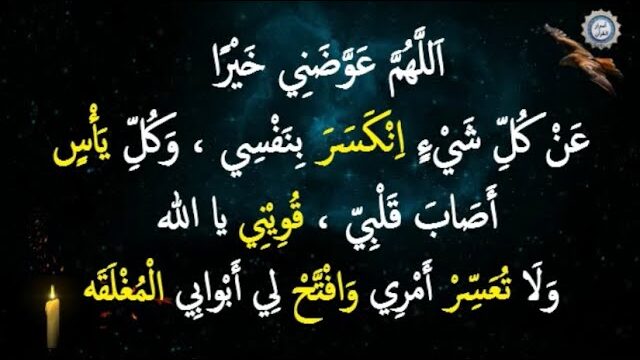 اَللَّهُمَّ عَوَّضَنِي خَيْرًا
عَنْ كُلِّ شَيْءٍ اِنْكَسَرَ بِنَفْسِي ، وَكُلِّ يَأْسٍ
أَصَابَ قَلْبِيّ ، قُوِيْنِي يا الله
وَلَا تُعَسِّرْ أَمْرِي وَافْتَّحْ لِي أَبْوابِي الْمُغْلَقَه